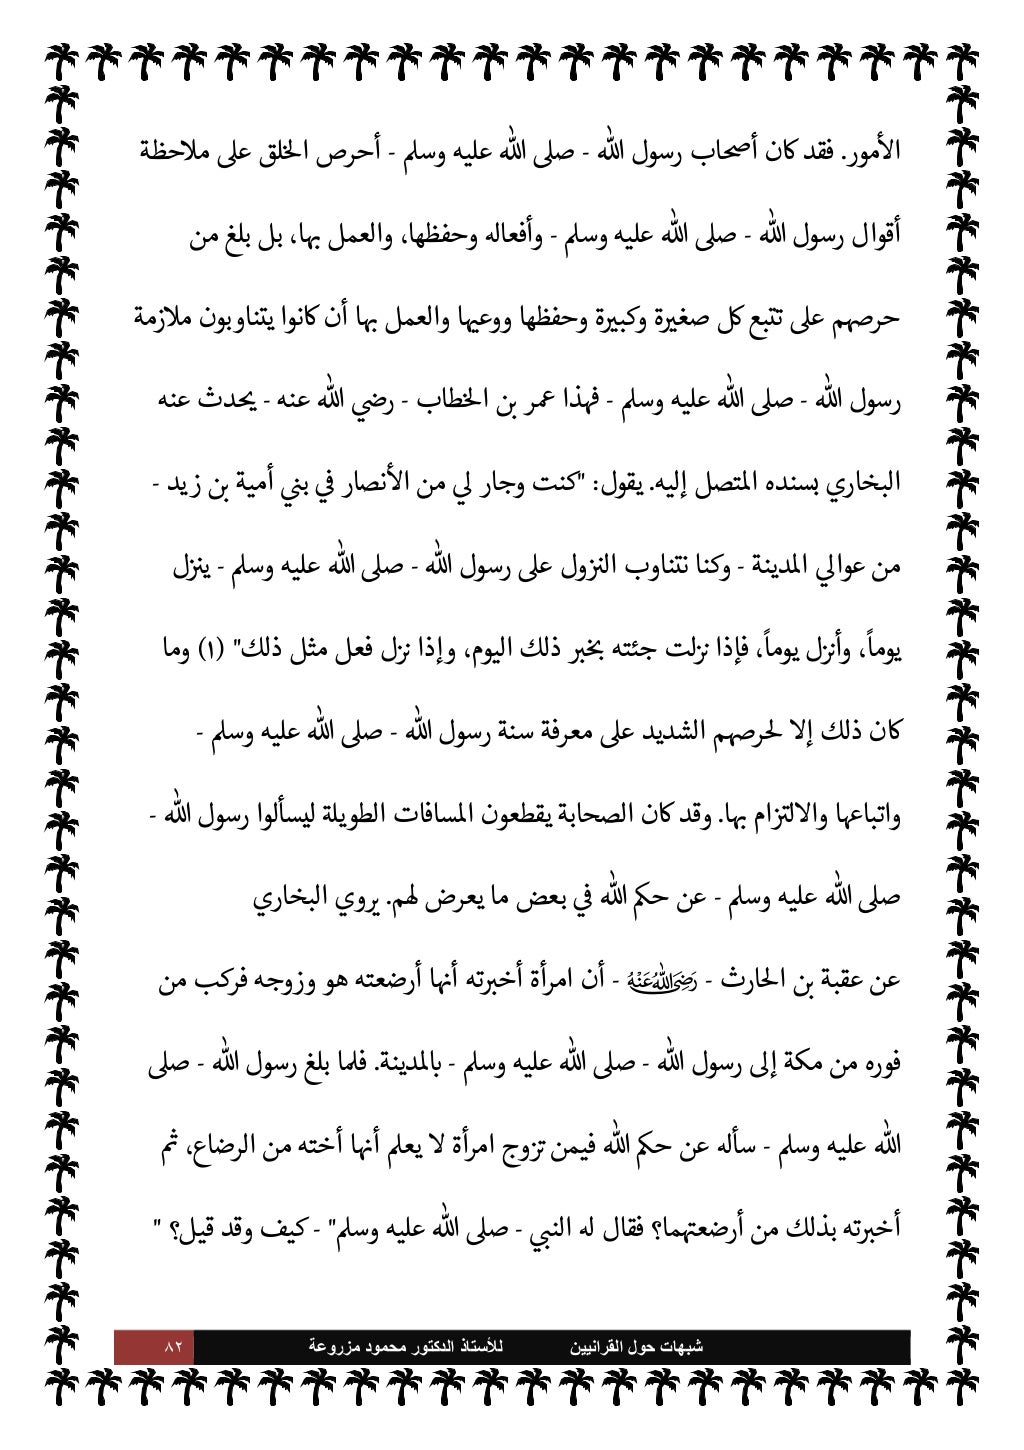 الأمور. فقد كان أصحاب رسول الله - صلى الله عليه وسلم - أحرص الخلق على ملاحظة
أقوال رسول الله - صلى الله عليه وسلم - وأفعاله وحفظها، والعمل بها، بل بلغ من
حرصهم على تتبع كل صغيرة وكبيرة وحفظها ووعيها والعمل بها أن كانوا يتناوبون ملازمة
رسول الله - صلى الله عليه وسلم - فهذا عمر بن الخطاب - رضي الله عنه - يحدث عنه
البخاري بسنده المتصل إليه. يقول: "كنت وجار لي من الأنصار في بني أمية بن زيد -
من عوالي المدينة - وكنا نتناوب النزول على رسول الله - صلى الله عليه وسلم - ينزل
يوماً، وأنزل يوماً، فإذا نزلت جئته بخبر ذلك اليوم، وإذا نزل فعل مثل ذلك" (١) وما
كان ذلك إلا لحرصهم الشديد على معرفة سنة رسول الله - صلى الله عليه وسلم -
واتباعها والالتزام بها. وقد كان الصحابة يقطعون المسافات الطويلة ليسألوا رسول الله -
صلى الله عليه وسلم - عن حكم الله في بعض ما يعرض لهم. يروي البخاري
عن عقبة بن الحارث - رَضِيَ اللَّهُ عَنْهُ - أن امرأة أخبرته أنها أرضعته هو وزوجه فركب من
فوره من مكة إلى رسول الله - صلى الله عليه وسلم - بالمدينة. فلما بلغ رسول الله - صلى
الله عليه وسلم - سأله عن حكم الله فيمن تزوج امرأة لا يعلم أنها أخته من الرضاع، ثم
أخبرته بذلك من أرضعتهما؟ فقال له النبي - صلى الله عليه وسلم" - كيف وقد قيل؟ "
شبهات حول القرانيين للأستاذ الدكتور محمود مزروعة ٨٢